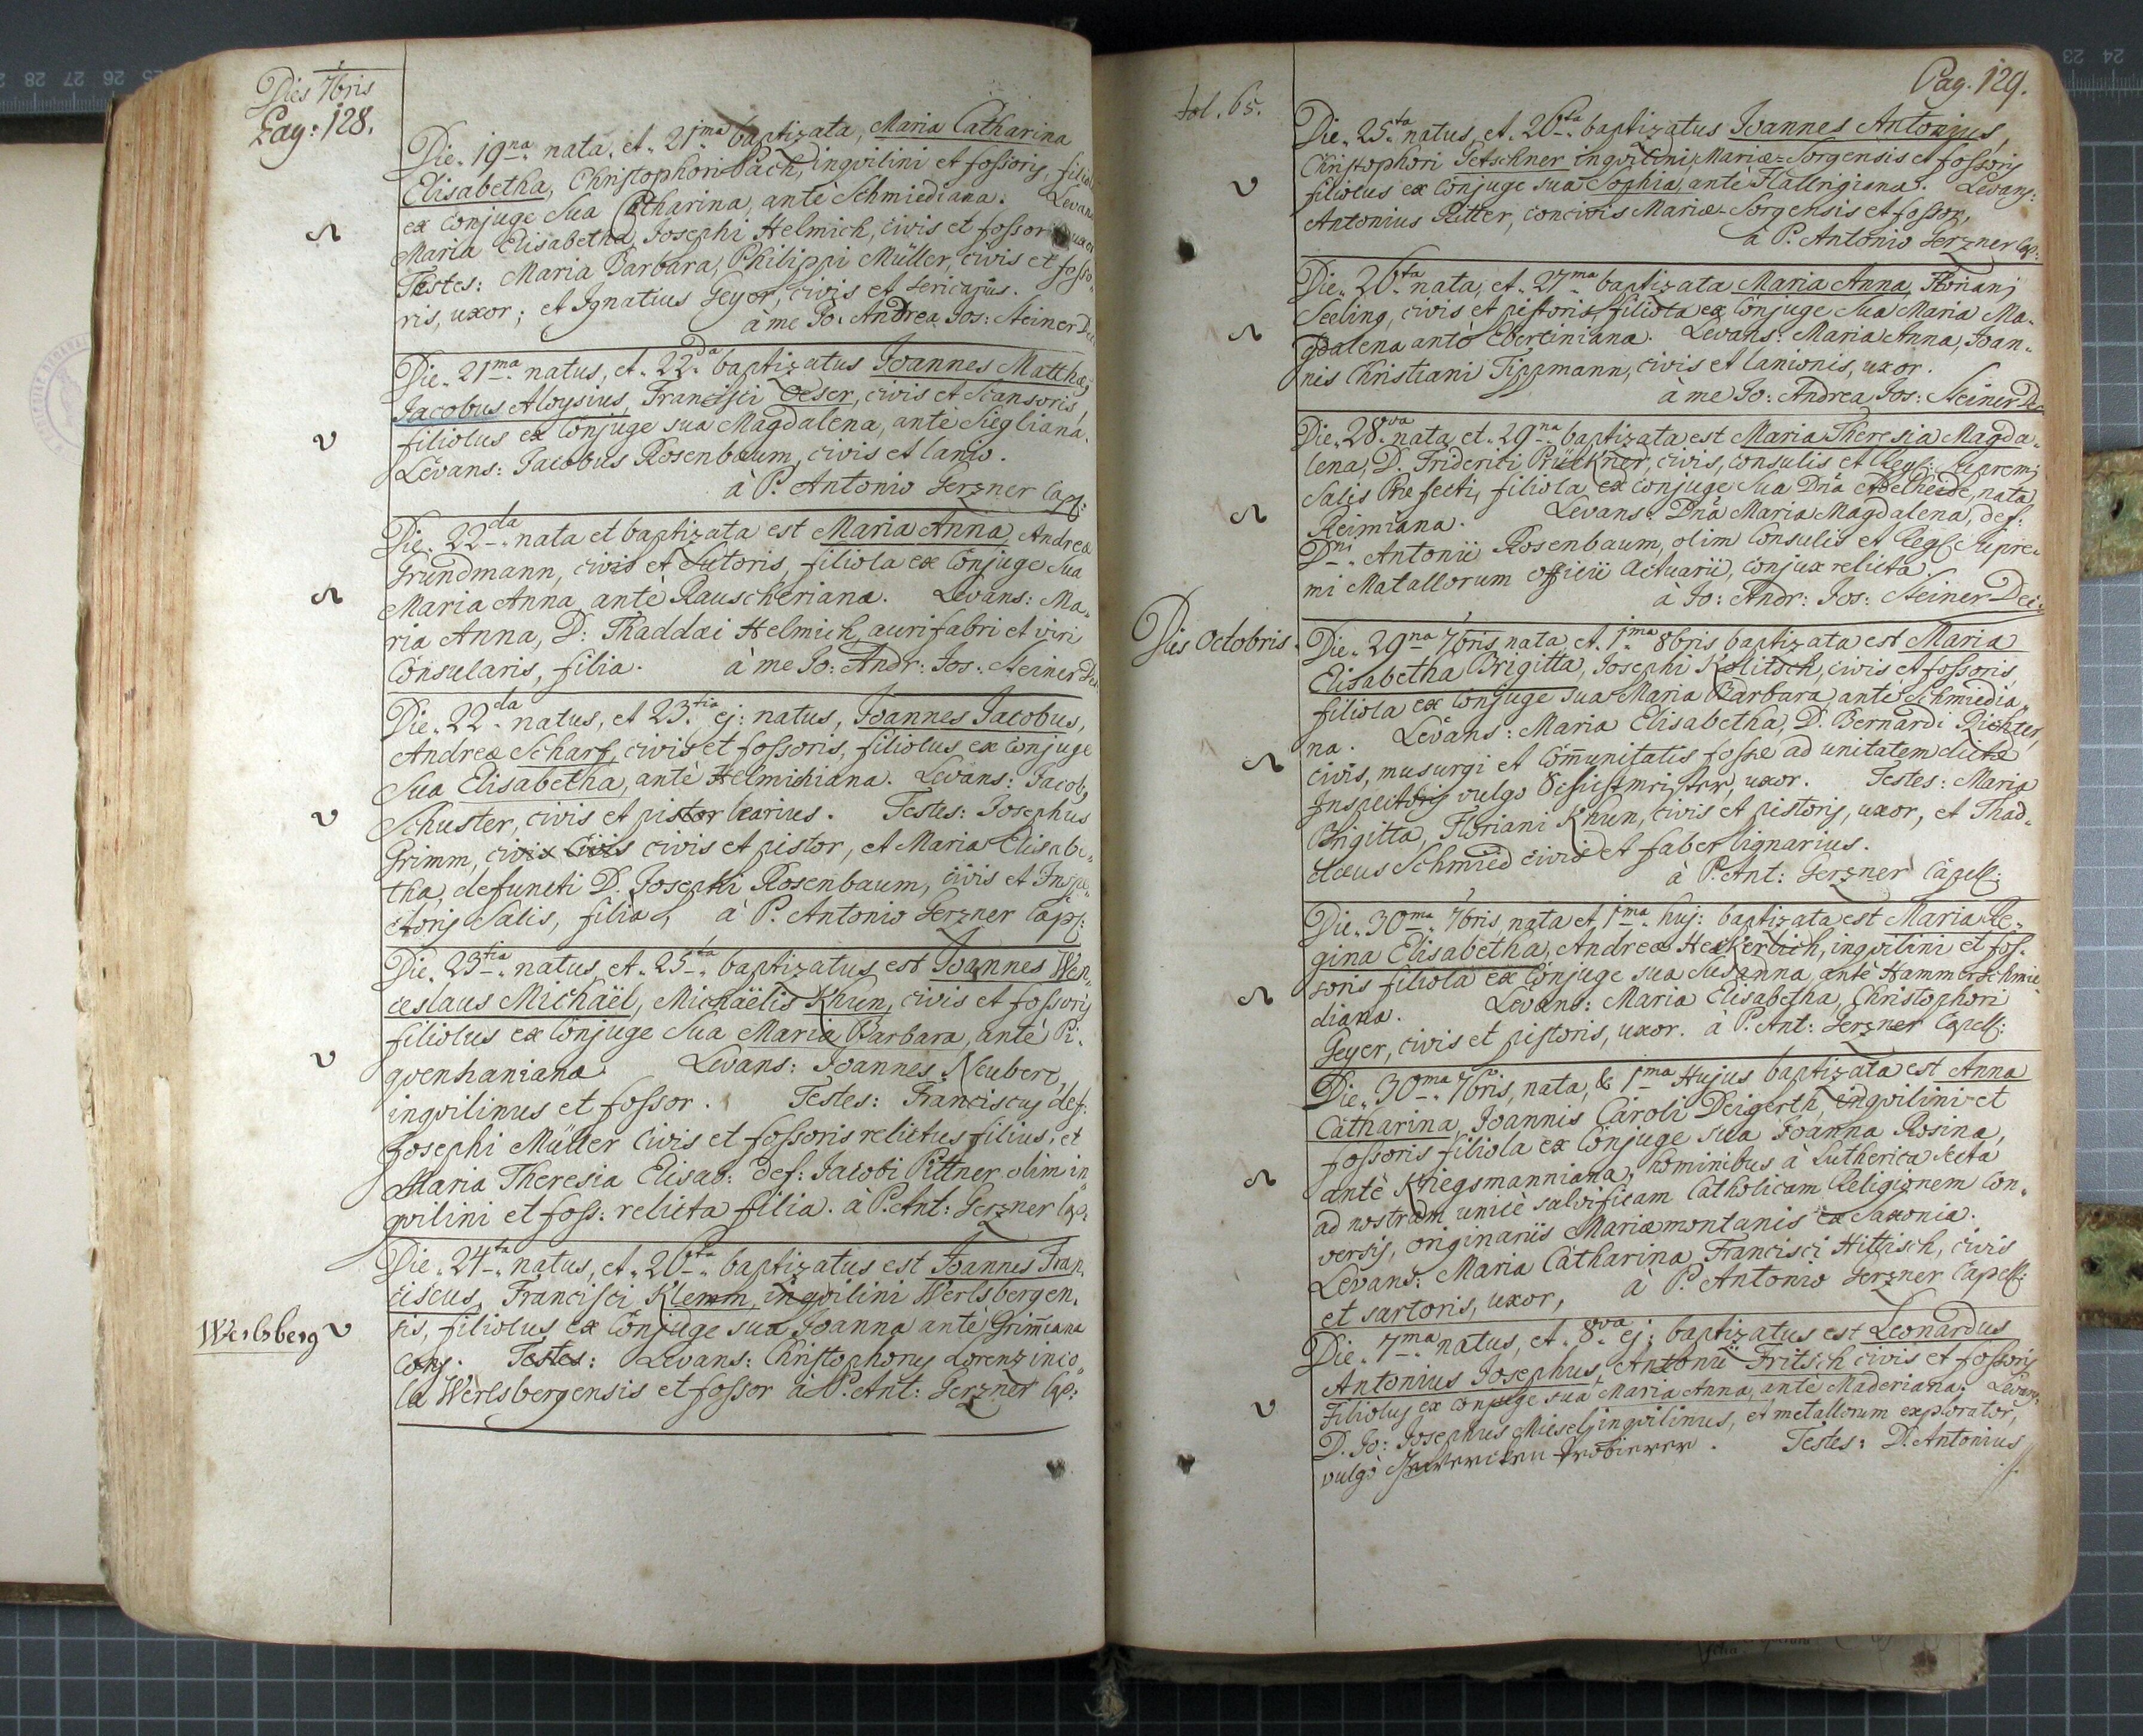 Dies 7bris
Pag: 128.
Die 19na nata, et 21ma baptizata, Maria Catharina
Elisabetha, Christophori Pach, inqvilini et fossoris, filiola
ex Conjuge Sua Catharina, antè Schmiediana. Levans
Maria Elisabetha, Josephi Helmich, civis et fossoris uxor
Testes: Maria Barbara, Philippi Müller, civis et fosso-
ris, uxor; et Ignatius Geyer, civis et sericarius.
à me Jo: Andrea Jos: Steiner Dec
Die 21ma natus, et 22da baptizatus Joannes Matthæus
Jacobus Aloysius, Francisci Oeser, civis et Scansoris,
filiolus ex Conjuge sua Magdalena, antè Siegliana.
Levans: Jacobus Rosenbaum, civis et lanio.
à P. Antonio Gerzner Cap:
Die 22da nata et baptizata est Maria Anna, Andreæ
Grundmann, civis et Sutoris, filiola ex Conjuge Sua
Maria Anna antè Rauscheriana. Levans: Ma-
ria Anna, D: Thaddæi Helmich, aurifabri et viri
Consularis, filia. à me Jo: Andr: Jos: Steiner Dec:
Die 22da natus, et 23tia ej: natus, Joannes Jacobus,
Andreæ Scharf, civis et fossoris, filiolus ex Conjuge
Sua Elisabetha, antè Helmichiana. Levans: Jacob,
Schuster, civis et pistor. Testes: Josephus
Grimm, civis et pistor, et Maria Elisabe-
tha, defuncti D. Josephi Rosenbaum, civis et Inspe-
ctoris Salis, filia, à P. Antonio Gerzner Cap:
Die 23tia natus, et 25ta baptizatus est Joannes Wen-
ceslaus Michaël, Michaëlis Khun, civis et fossoris
filiolus ex Conjuge Sua Maria Barbara, antè Pi-
qvenhaniana. Levans: Joannes Neubert,
inqvilinus et fossor. Testes: Franciscus, def:
Josephi Müller Civis et fossoris relictus filius, et
Maria Theresia Elisab: def: Jacobi Pittner olim in
qvilini et foss: relicta filia. à P. Ant: Gerzner Cap:
Die 24ta natus, et 26ta baptizatus est Joannes Fran-
ciscus, Francisci Klemm, inqvilini Werlsbergen-
Werlsberg
sis, filiolus ex Conjuge sua Joanna antè Grimiana
Conj. Testes: Levans: Christophorus Lorenz inco-
la Werlsbergensis et fossor à P. Ant: Gerzner Cap:
fol. 65.
Pag. 129.
Die 25ta natus, et 26ta baptizatus Joannes Antonius,
Christophori Petschner inqvilini Mariæ-Sorgensis et fossoris
filiolus ex Conjuge sua Sophia, antè Hallrigiana. Levans:
Antonius Ritter, concivis Mariæ-Sorgensis et fossor,
à P. Antonio Gerzner Cap:
Die 26ta nata, et 27ma baptizata Maria Anna, Floriani
Seeling, civis et pistoris, filiola ex Conjuge sua Maria Ma-
gdalena antè Eberliniana. Levans: Maria Anna, Joan-
nis Christiani Tippmann, civis et lanionis, uxor.
à me Jo: Andrea Jos: Steiner Dec
Die 28va nata et 29na baptizata est Maria Theresia Magda-
lena, D. Friderici Prückner, civis, consulis et Regii Supremi
Salis Præfecti, filiola ex Conjuge Sua Dna Adelheide, nata
Reimiana. Levans: Dna Maria Magdalena, def:
Dni Antonii Rosenbaum, olim Consulis et Regii Supre-
mi Matallorum officii Actuarii, Conjux relicta.
à Jo: Andr: Jos: Steiner Dec:
Dies Octobris.
Die 29na 7bris nata et 1ma 8bris baptizata est Maria
Elisabetha Brigitta, Josephi Kolitsch, civis et fossoris,
filiola ex Conjuge sua Maria Barbara antè Schmiedia-
na. Levans: Maria Elisabetha, D. Bernardi Richter,
civis, musurgi et Communitatis fossæ ad unitatem dictæ
Inspectoris vulgo Schichtmeister, uxor. Testes: Maria
Brigitta, Floriani Khun, civis et pistoris, uxor, et Thad-
dæus Schmied civis et faber lignarius.
à P. Ant: Gerzner Capell:
Die 30ma 7bris nata et 1ma huj: baptizata est Maria Re-
gina Elisabetha, Andreæ Heckerlich, inqvilini et fos-
soris filiola ex Conjuge sua Susanna antè Hammerschmie-
diana. Levans: Maria Elisabetha, Christophori
Geyer, civis et pistoris, uxor. à P. Ant: Gerzner Capell:
Die 30ma 7bris, nata, & 1ma Hujus baptizata est Anna
Catharina, Joannis Caroli Deigerth, inqvilini et
fossoris filiola ex Conjuge sua Joanna Rosina,
antè Kriegsmanniana, hominibus à Lutherica Secta
ad nostram unicè salvificam Catholicam Religionem Con-
versis, originariis Mariæmontanis ex Saxonia.
Levans: Maria Catharina, Francisci Hittisch, civis
et sartoris, uxor, à P. Antonio Gerzner Capell:
Die 7ma natus, et 8va ej: baptizatus est Leonardus
Antonius Josephus, Antonii Fritsch civis et fossoris
Filiolus ex Conjuge sua Maria Anna, antè Maderiana, Levans:
D. Jo: Josephus Miesel, inqvilinus, et metallorum explorator,
vulgò Probierer. Testes: D. Antonius